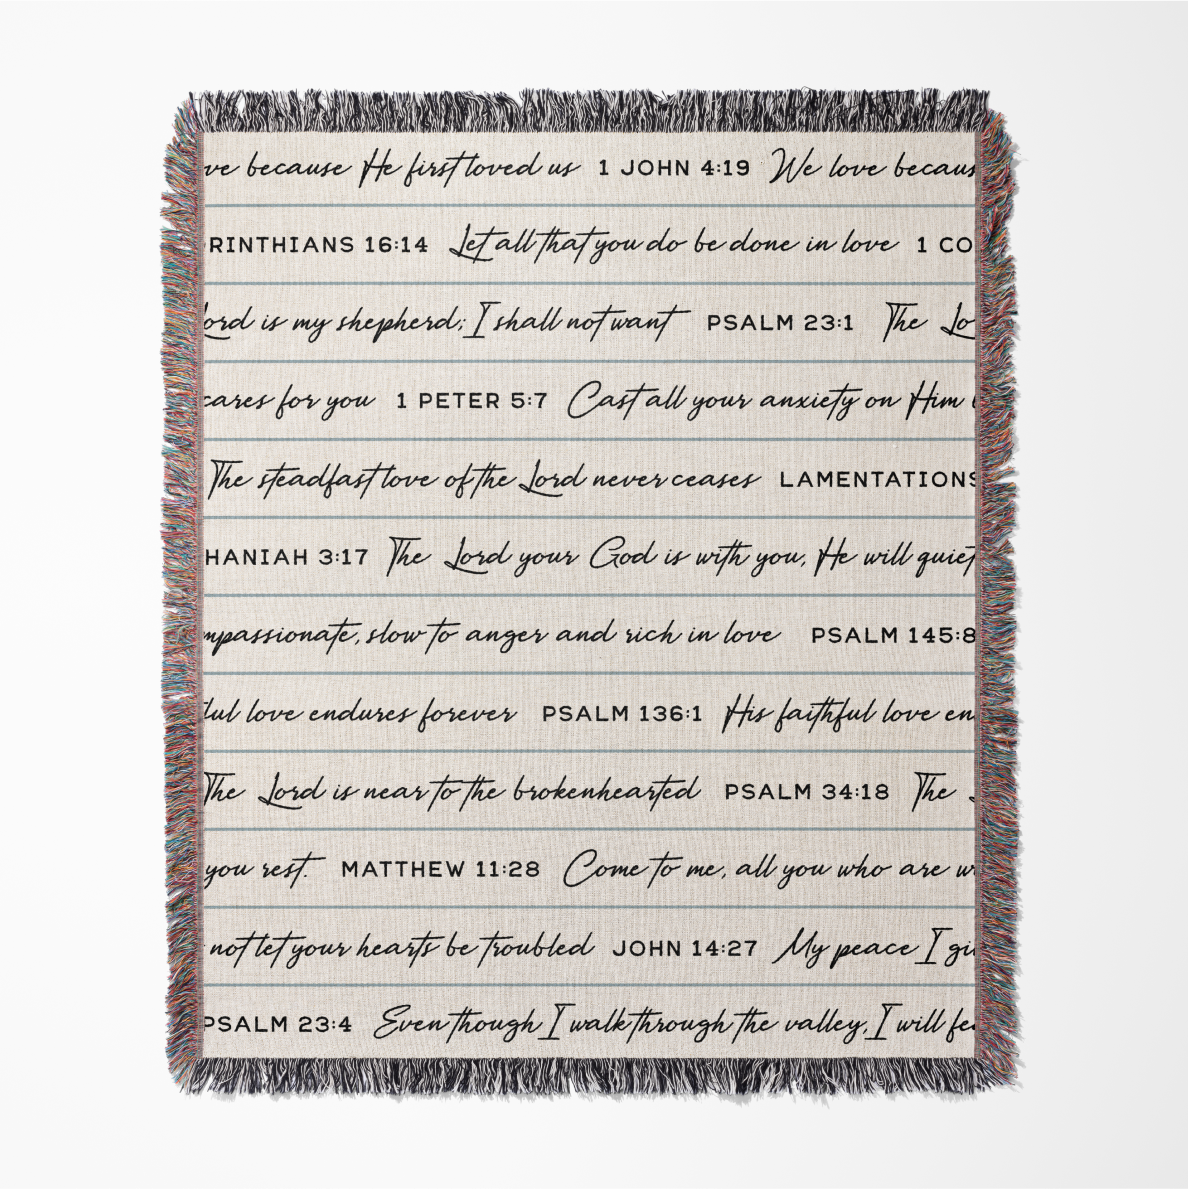 ve because He first loved us 1 JOHN 4:19 We love becaus
RINTHIANS 16:14 Let all that you do be done in love 1 CO
Lord is my shepherd; I shall not want PSALM 23:1 The Lo
cares for you 1 PETER 5:7 Cast all your anxiety on Him
The steadfast love of the Lord never ceases LAMENTATIONS
HANIAH 3:17 The Lord your God is with you, He will quiet
mpassionate, slow to anger and rich in love PSALM 145:8
ful love endures forever PSALM 136:1 His faithful love en
The Lord is near to the brokenhearted PSALM 34:18 The
you rest. MATTHEW 11:28 Come to me, all you who are w
not let your hearts be troubled JOHN 14:27 My peace I gi
PSALM 23:4 Even though I walk through the valley, I will fe